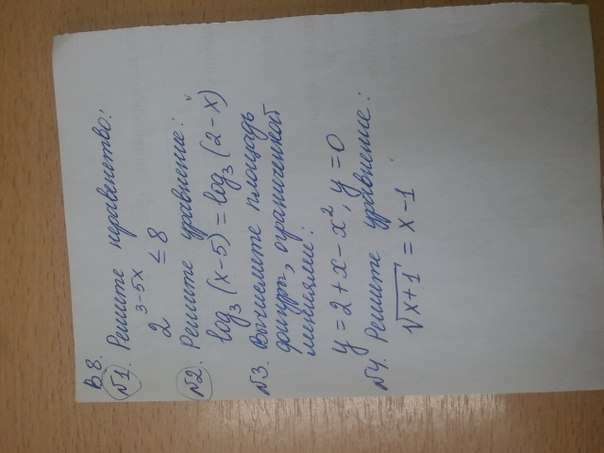 В 8.
№1. Решите неравенство:
2^(3-5x) ≤ 8
№2. Решите уравнение:
log₃(x-5) = log₃(2-x)
№3. Вычислите площадь
фигуры, ограниченной
линиями:
y = 2 + x - x², y = 0
№4. Решите уравнение:
√(x+1) = x - 1